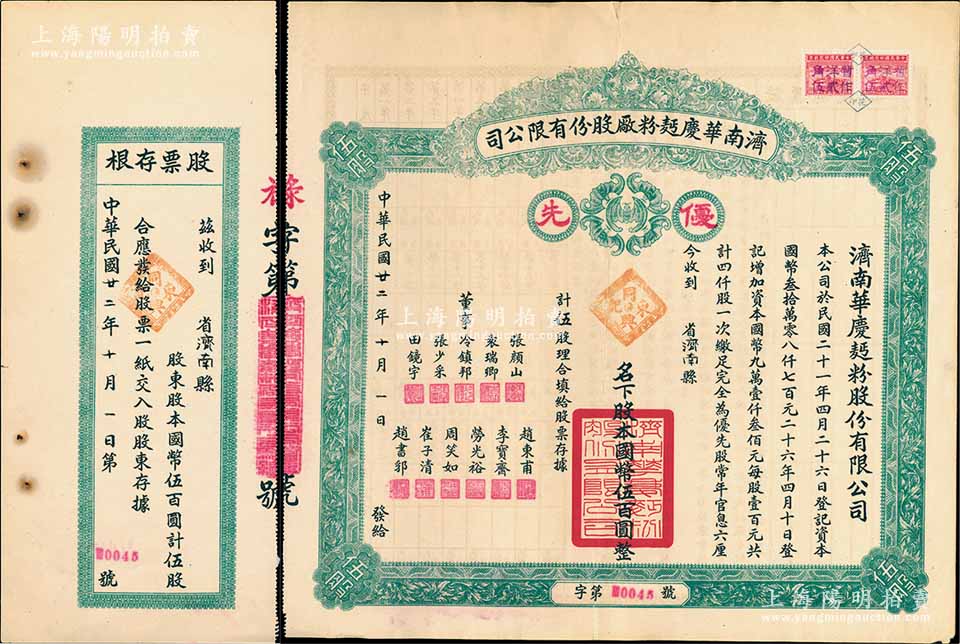 上海陽明拍賣
www.yangmingauction.com
暫作
洋貳
角伍
暫作
洋貳
角伍
濟南華慶麵粉廠股份有限公司
伍股
伍股
優先
濟南華慶麵粉股份有限公司
本公司於民國二十一年四月二十六日登記資本
國幣叁拾萬零八仟七百元二十六年四月十日登
記增加資本國幣九萬壹仟叁佰元每股壹百元共
計四仟股一次繳足完全為優先股常年官息六厘
今收到 省濟南縣
名下股本國幣伍百圓整
計伍股理合填給股票存據
董事
張顏山
瑞卿
冷鎮邦
張少采
田鏡宇
趙東甫
李寶齋
勞光裕
周笑如
崔子清
趙書邨
中華民國廿二年十月一日 發給
伍股
伍股
字第 0045 號
祿字第 號
股票存根
茲收到 省濟南縣
股東股本國幣伍百圓計伍股
合應發給股票一紙交入股股東存據
中華民國廿二年十月一日第
0045 號
上海陽明拍賣
www.yangmingauction.com
上海陽明拍賣
www.yangmingauction.com